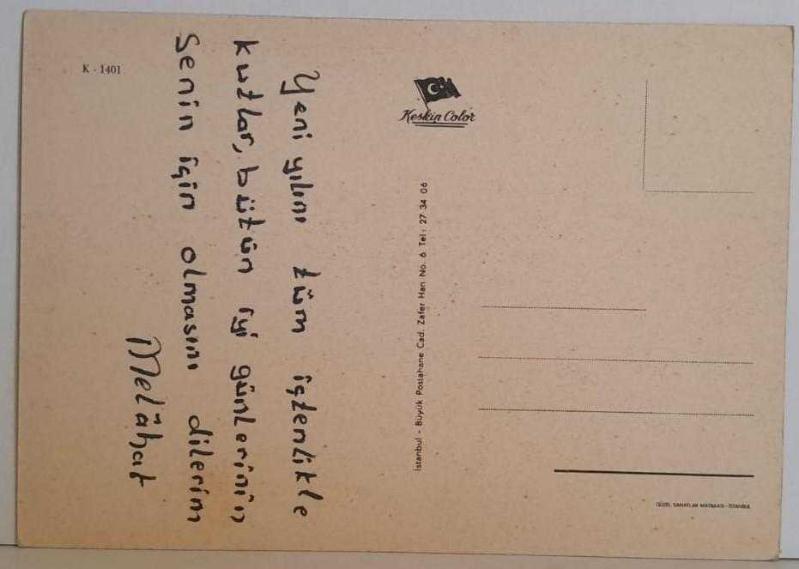 Yeni yılını tüm içtenlikle
kutlar, bütün iyi günlerinin
Senin için olmasını dilerim
Melâhat
K - 1401
Keskin Color
İstanbul - Büyük Postahane Cad. Zafer Han No. 6 Tel: 27 34 06
GÜZEL SANATLAR MATBAASI - İSTANBUL